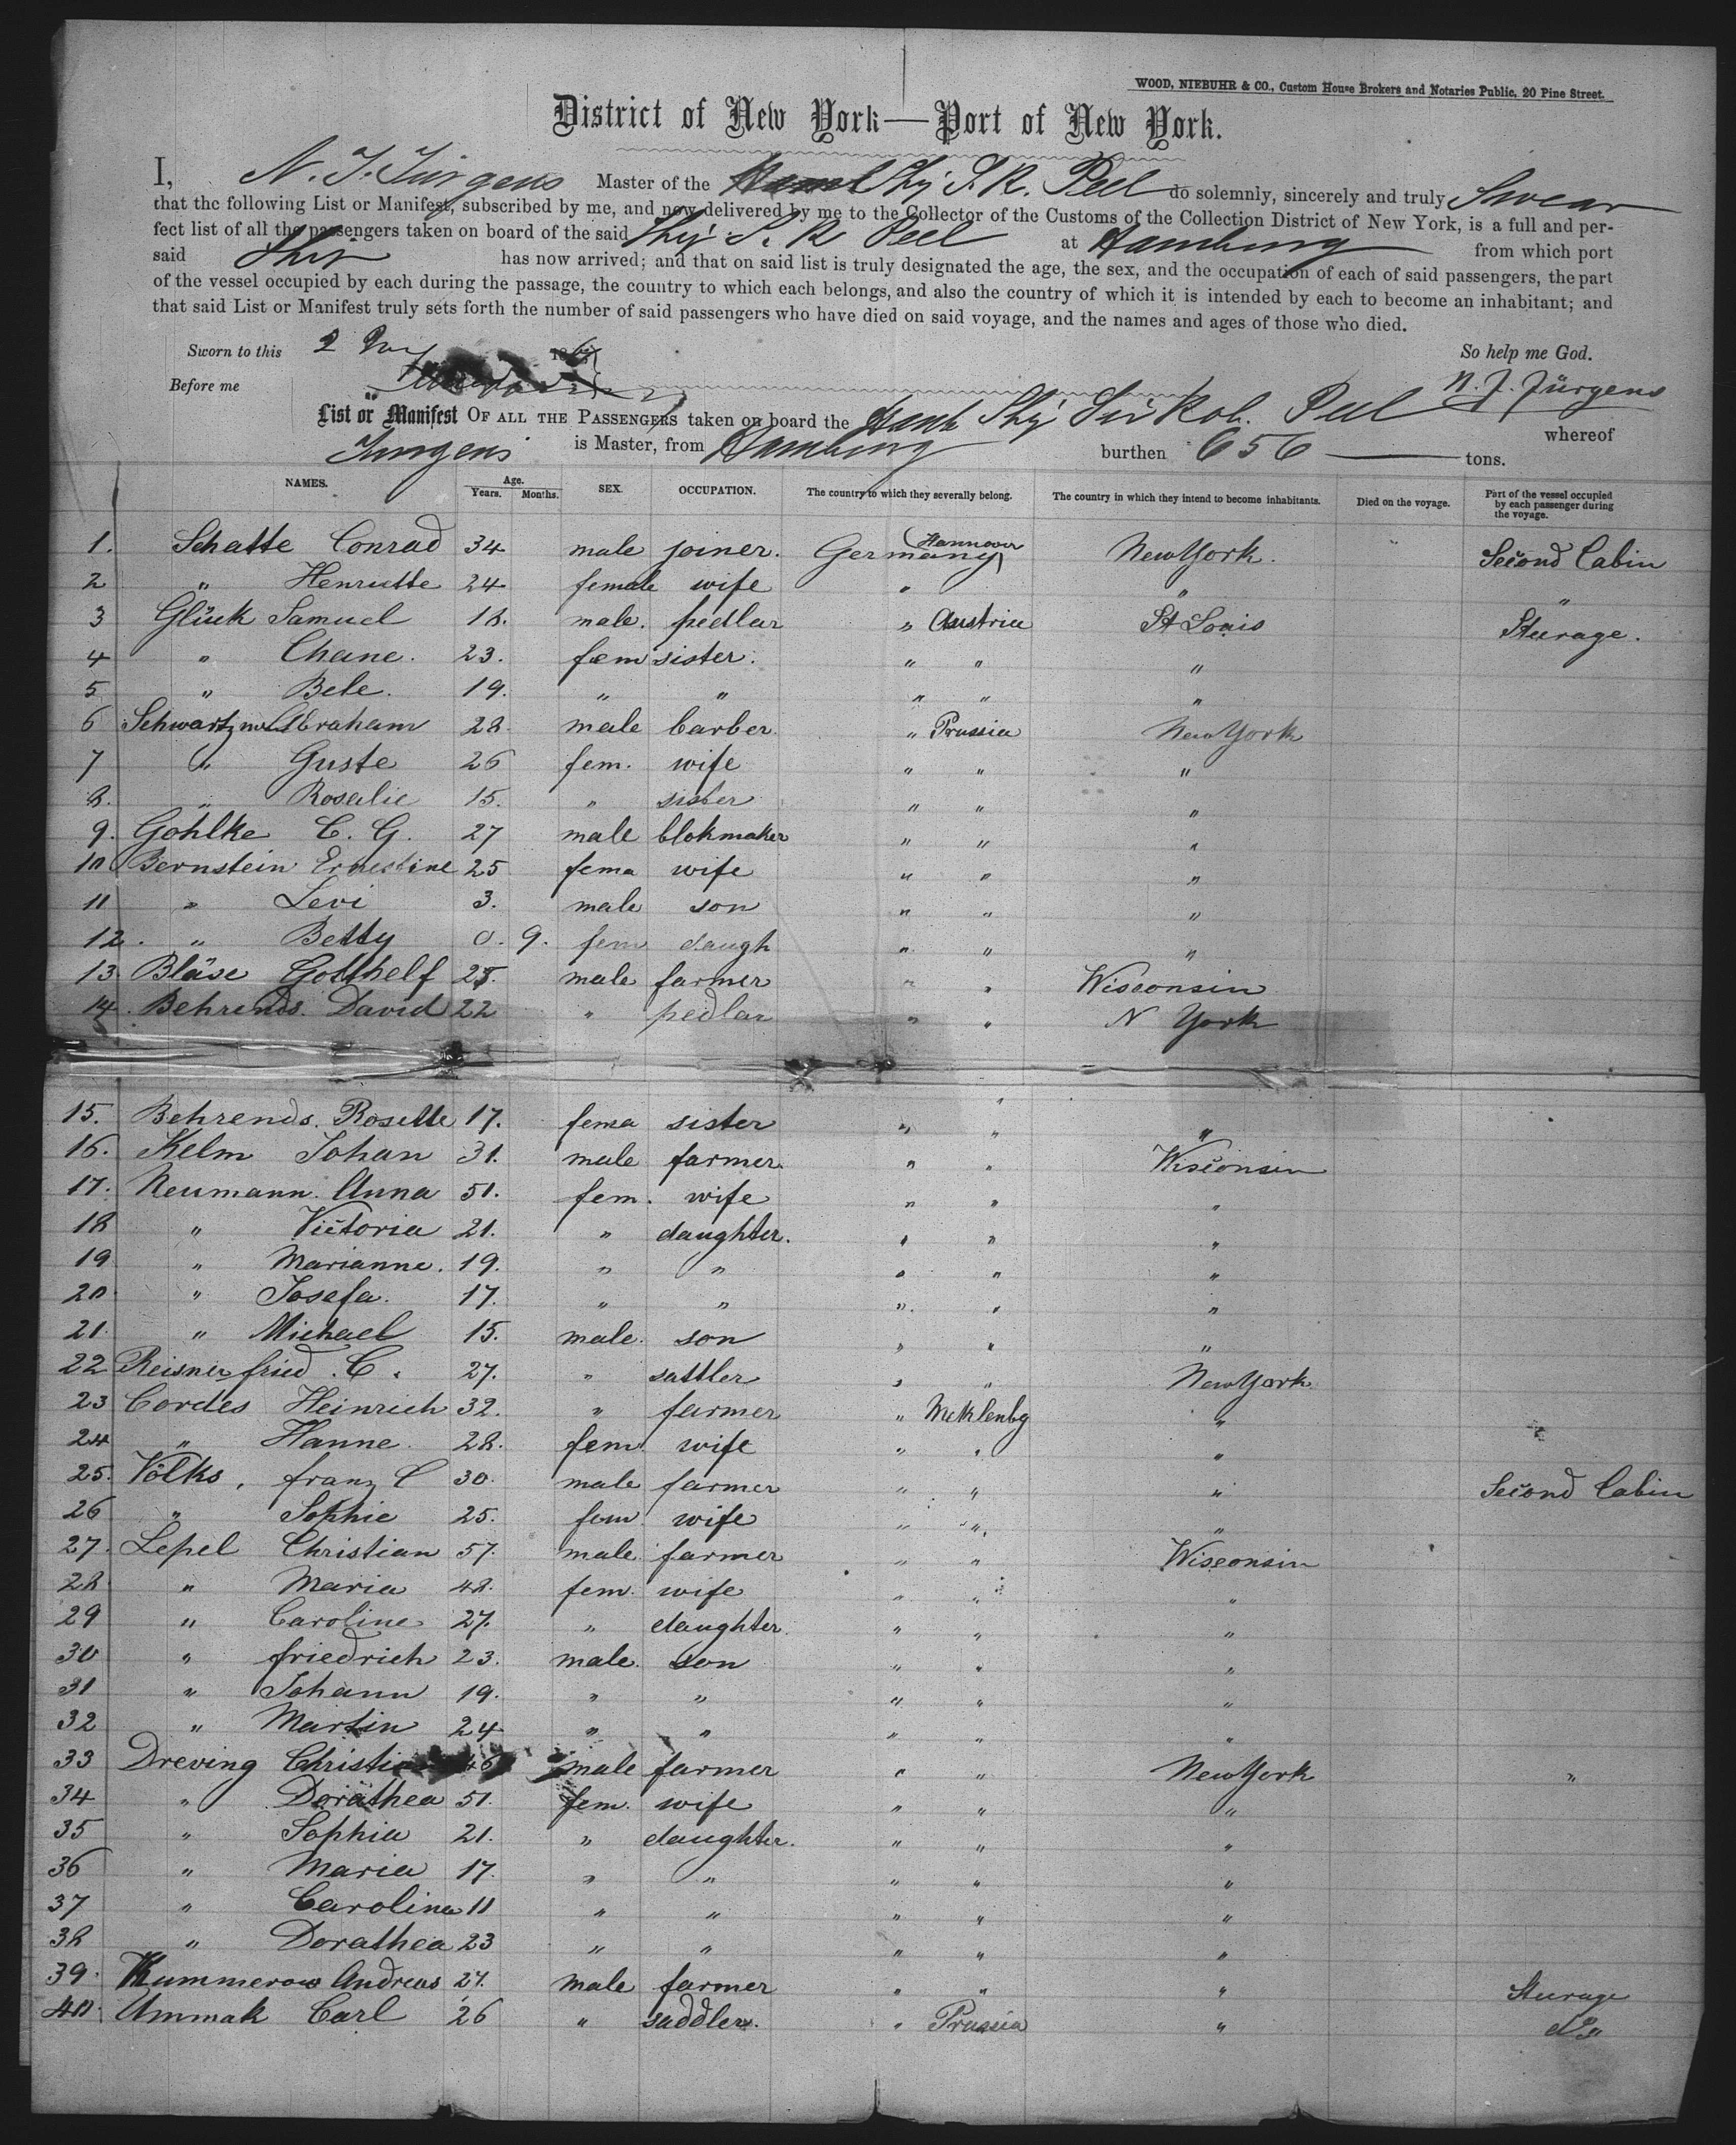 WOOD, NIEBUHR & CO., Custom House Brokers and Notaries Public, 20 Pine Street.
District of New York—Port of New York.
I, N. J. Jürgens Master of the Ship S. R. Peel do solemnly, sincerely and truly Swear
that the following List or Manifest, subscribed by me, and now delivered by me to the Collector of the Customs of the Collection District of New York, is a full and per-
fect list of all the passengers taken on board of the said Ship S. R Peel at Hamburg from which port
said Ship has now arrived; and that on said list is truly designated the age, the sex, and the occupation of each of said passengers, the part
of the vessel occupied by each during the passage, the country to which each belongs, and also the country of which it is intended by each to become an inhabitant; and
that said List or Manifest truly sets forth the number of said passengers who have died on said voyage, and the names and ages of those who died.
Sworn to this 2 So help me God.
Before me N. J. Jürgens
List or Manifest OF ALL THE PASSENGERS taken on board the Hamb Ship Sir Rob. Peel whereof
Jurgens is Master, from Hamburg burthen 656 tons.
NAMES. Age. Years. Months. SEX. OCCUPATION. The country to which they severally belong. The country in which they intend to become inhabitants. Died on the voyage. Part of the vessel occupied by each passenger during the voyage.
1. Schatte Conrad 34 male joiner. Germany (Hannover) New York. Second Cabin
2 " Henriette 24 female wife " " "
3 Glück Samuel 18. male. pedlar " Austria St Louis Steerage.
4 " Chane. 23. fem sister. " " "
5 " Bele. 19. " " " " "
6 Abraham 28. male barber. " Prussia New York
7 " Guste 26 fem. wife " " "
8. " Rosalie 15. " sister " " "
9. Gohlke C. G. 27 male blokmaker " " "
10 Bernstein Ernestine 25 fema wife " " "
11 " Levi 3. male son " " "
12. " Betty 0. 9. fem daugh " " "
13. Bläse Gotthelf 25. male farmer " " Wisconsin
14. Behrends. David 22 " pedlar " " N York
15. Behrends. Rosette 17. fema sister " " "
16. Kelm Johan 31. male farmer. " " Wisconsin
17. Neumann. Anna 51. fem. wife " " "
18 " Victoria 21. " daughter. " " "
19 " Marianne. 19. " " " " "
20 " Josefa. 17. " " " " "
21. " Michael 15. male. son " " "
22 Reisner fried. C. 27. " sattler " " New York
23 Cordes Heinrich 32. " farmer " Meklenbg "
24 " Hanne. 28. fem. wife " " "
25. Völks, franz C 30. male farmer " " " Second Cabin
26 " Sophie 25. fem wife " " "
27. Lepel Christian 57. male farmer " " Wisconsin
28 " Maria 48. fem. wife " " "
29 " Caroline 27. " daughter. " " "
30 " friedrich 23. male. son " " "
31 " Johann 19. " " " " "
32 " Martin 24 " " " " "
33 Dreving 46 male farmer " " New York "
34 " Dorathea 51. fem. wife " " "
35 " Sophia 21. " daughter. " " "
36 " Maria 17. " " " " "
37 " Carolina 11 " " " " "
38 " Dorathea 23 " " " " "
39. Kummerow Andreas 27. male farmer " " " Steerage
40. Ammak Carl 26 " saddler. " Prussia " do